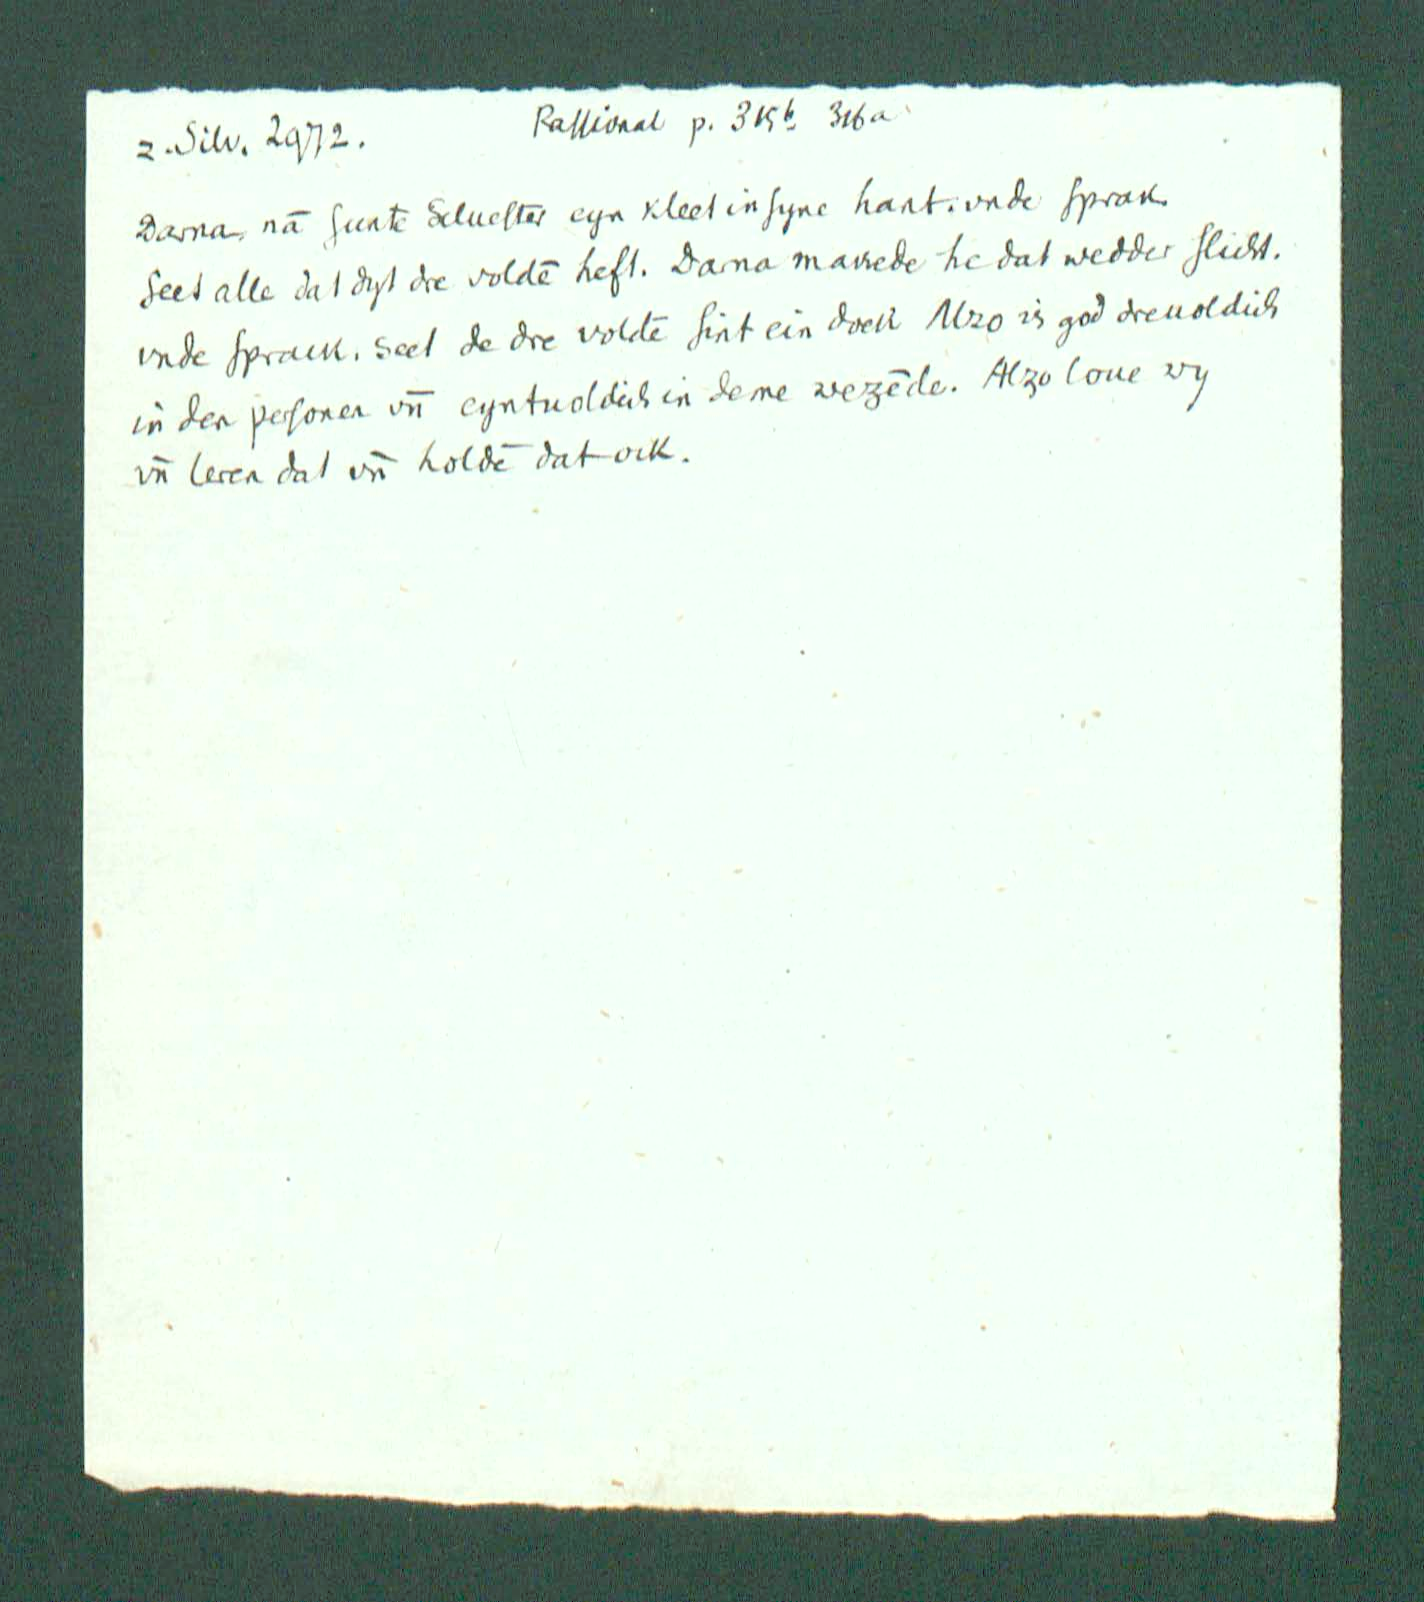 z. Silv. 2972. Paſſional p. 315b. 316a
Darna, nā ſunte Silueſter eyn kleet in ſyne hant. vnde ſprak
Seet alle dat dyt dre voldē heft. Darna makede he dat wedder ſlicht.
vnde ſprack. seet de dre voldē ſint ein doek Alzo is god dreuoldich
in den perſonen vn̄ eyntuoldich in deme wezēde. Alzo loue wy
vn̄ leren dat vn̄ holdē dat ock.